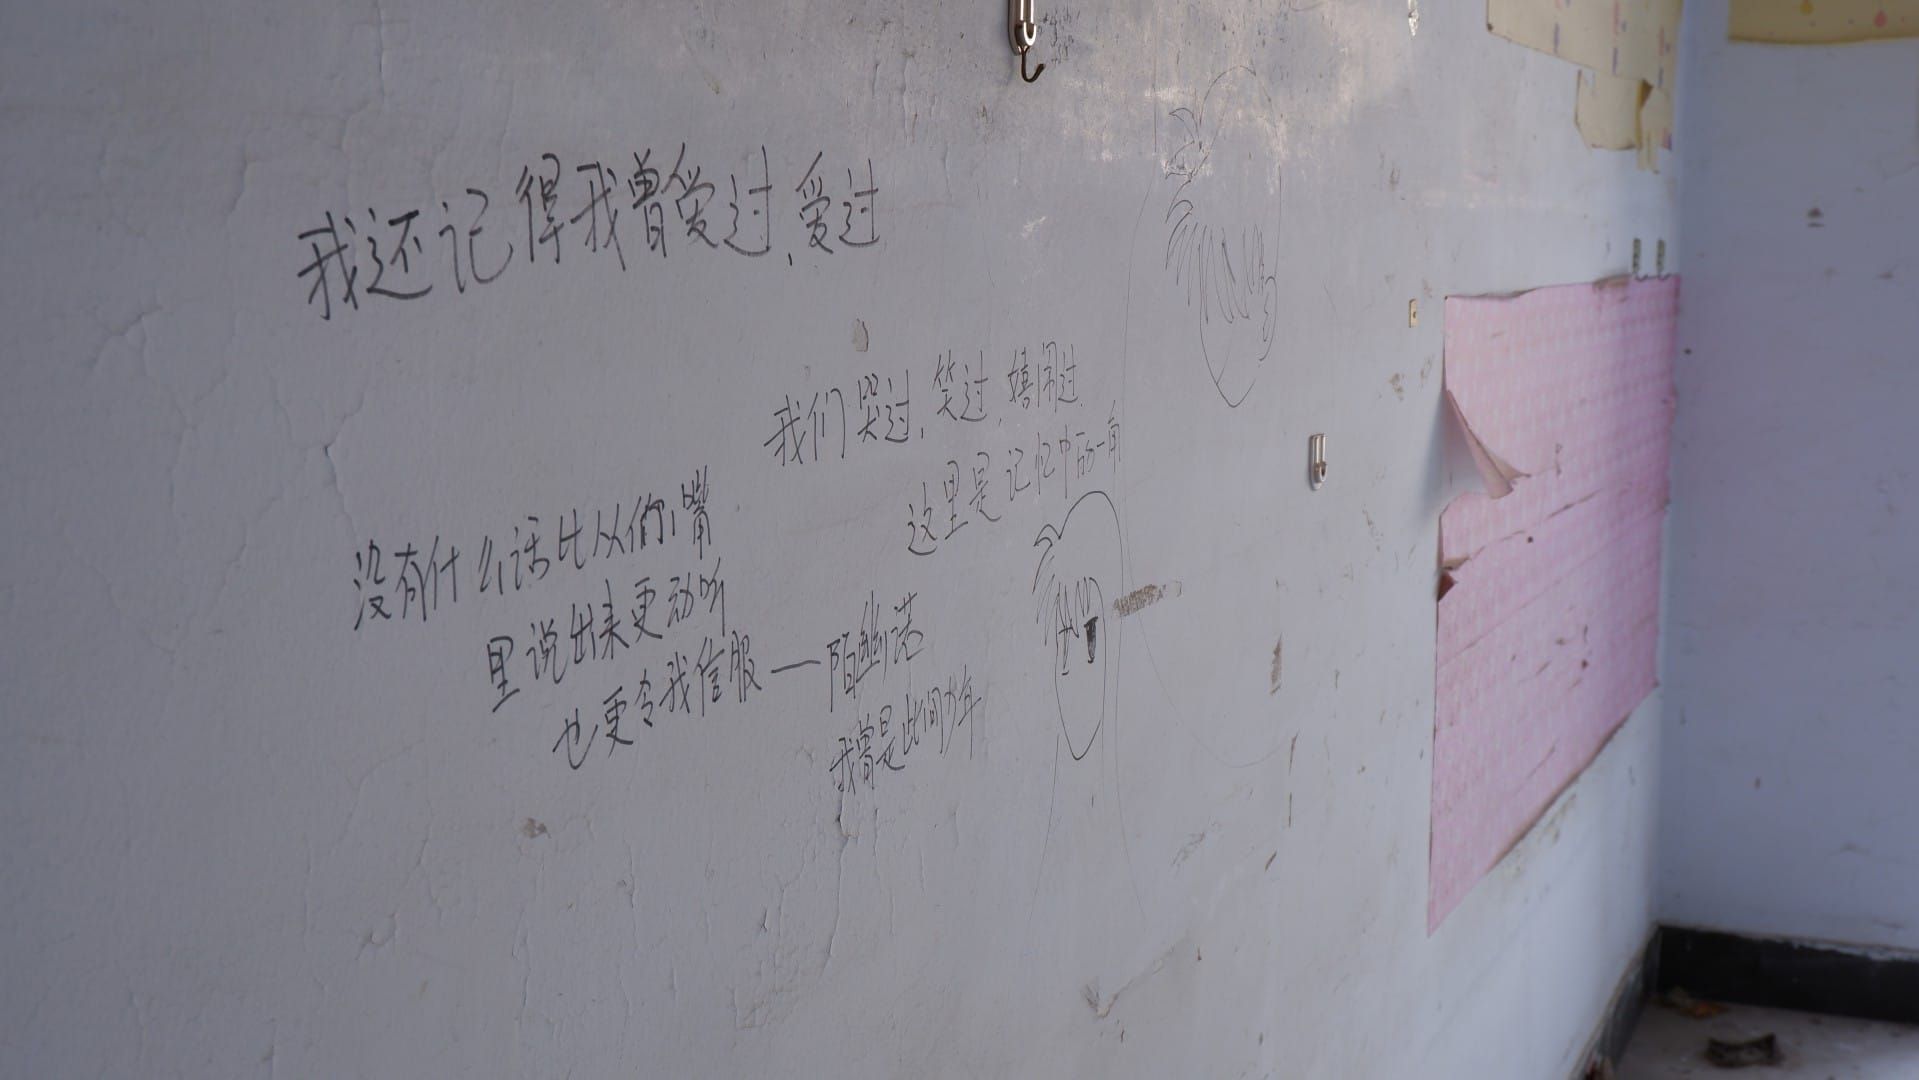 我还记得我曾爱过,爱过
我们哭过,笑过,嬉闹过,
这里是记忆中的一角
没有什么话比从你嘴
里说出来更动听
也更令我信服—陌幽诺
我曾是此间少年